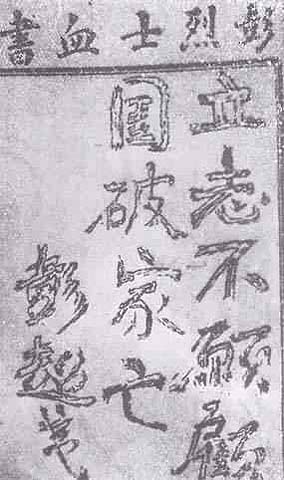 彭烈士血書
立志不願顧
國破家亡
彭超